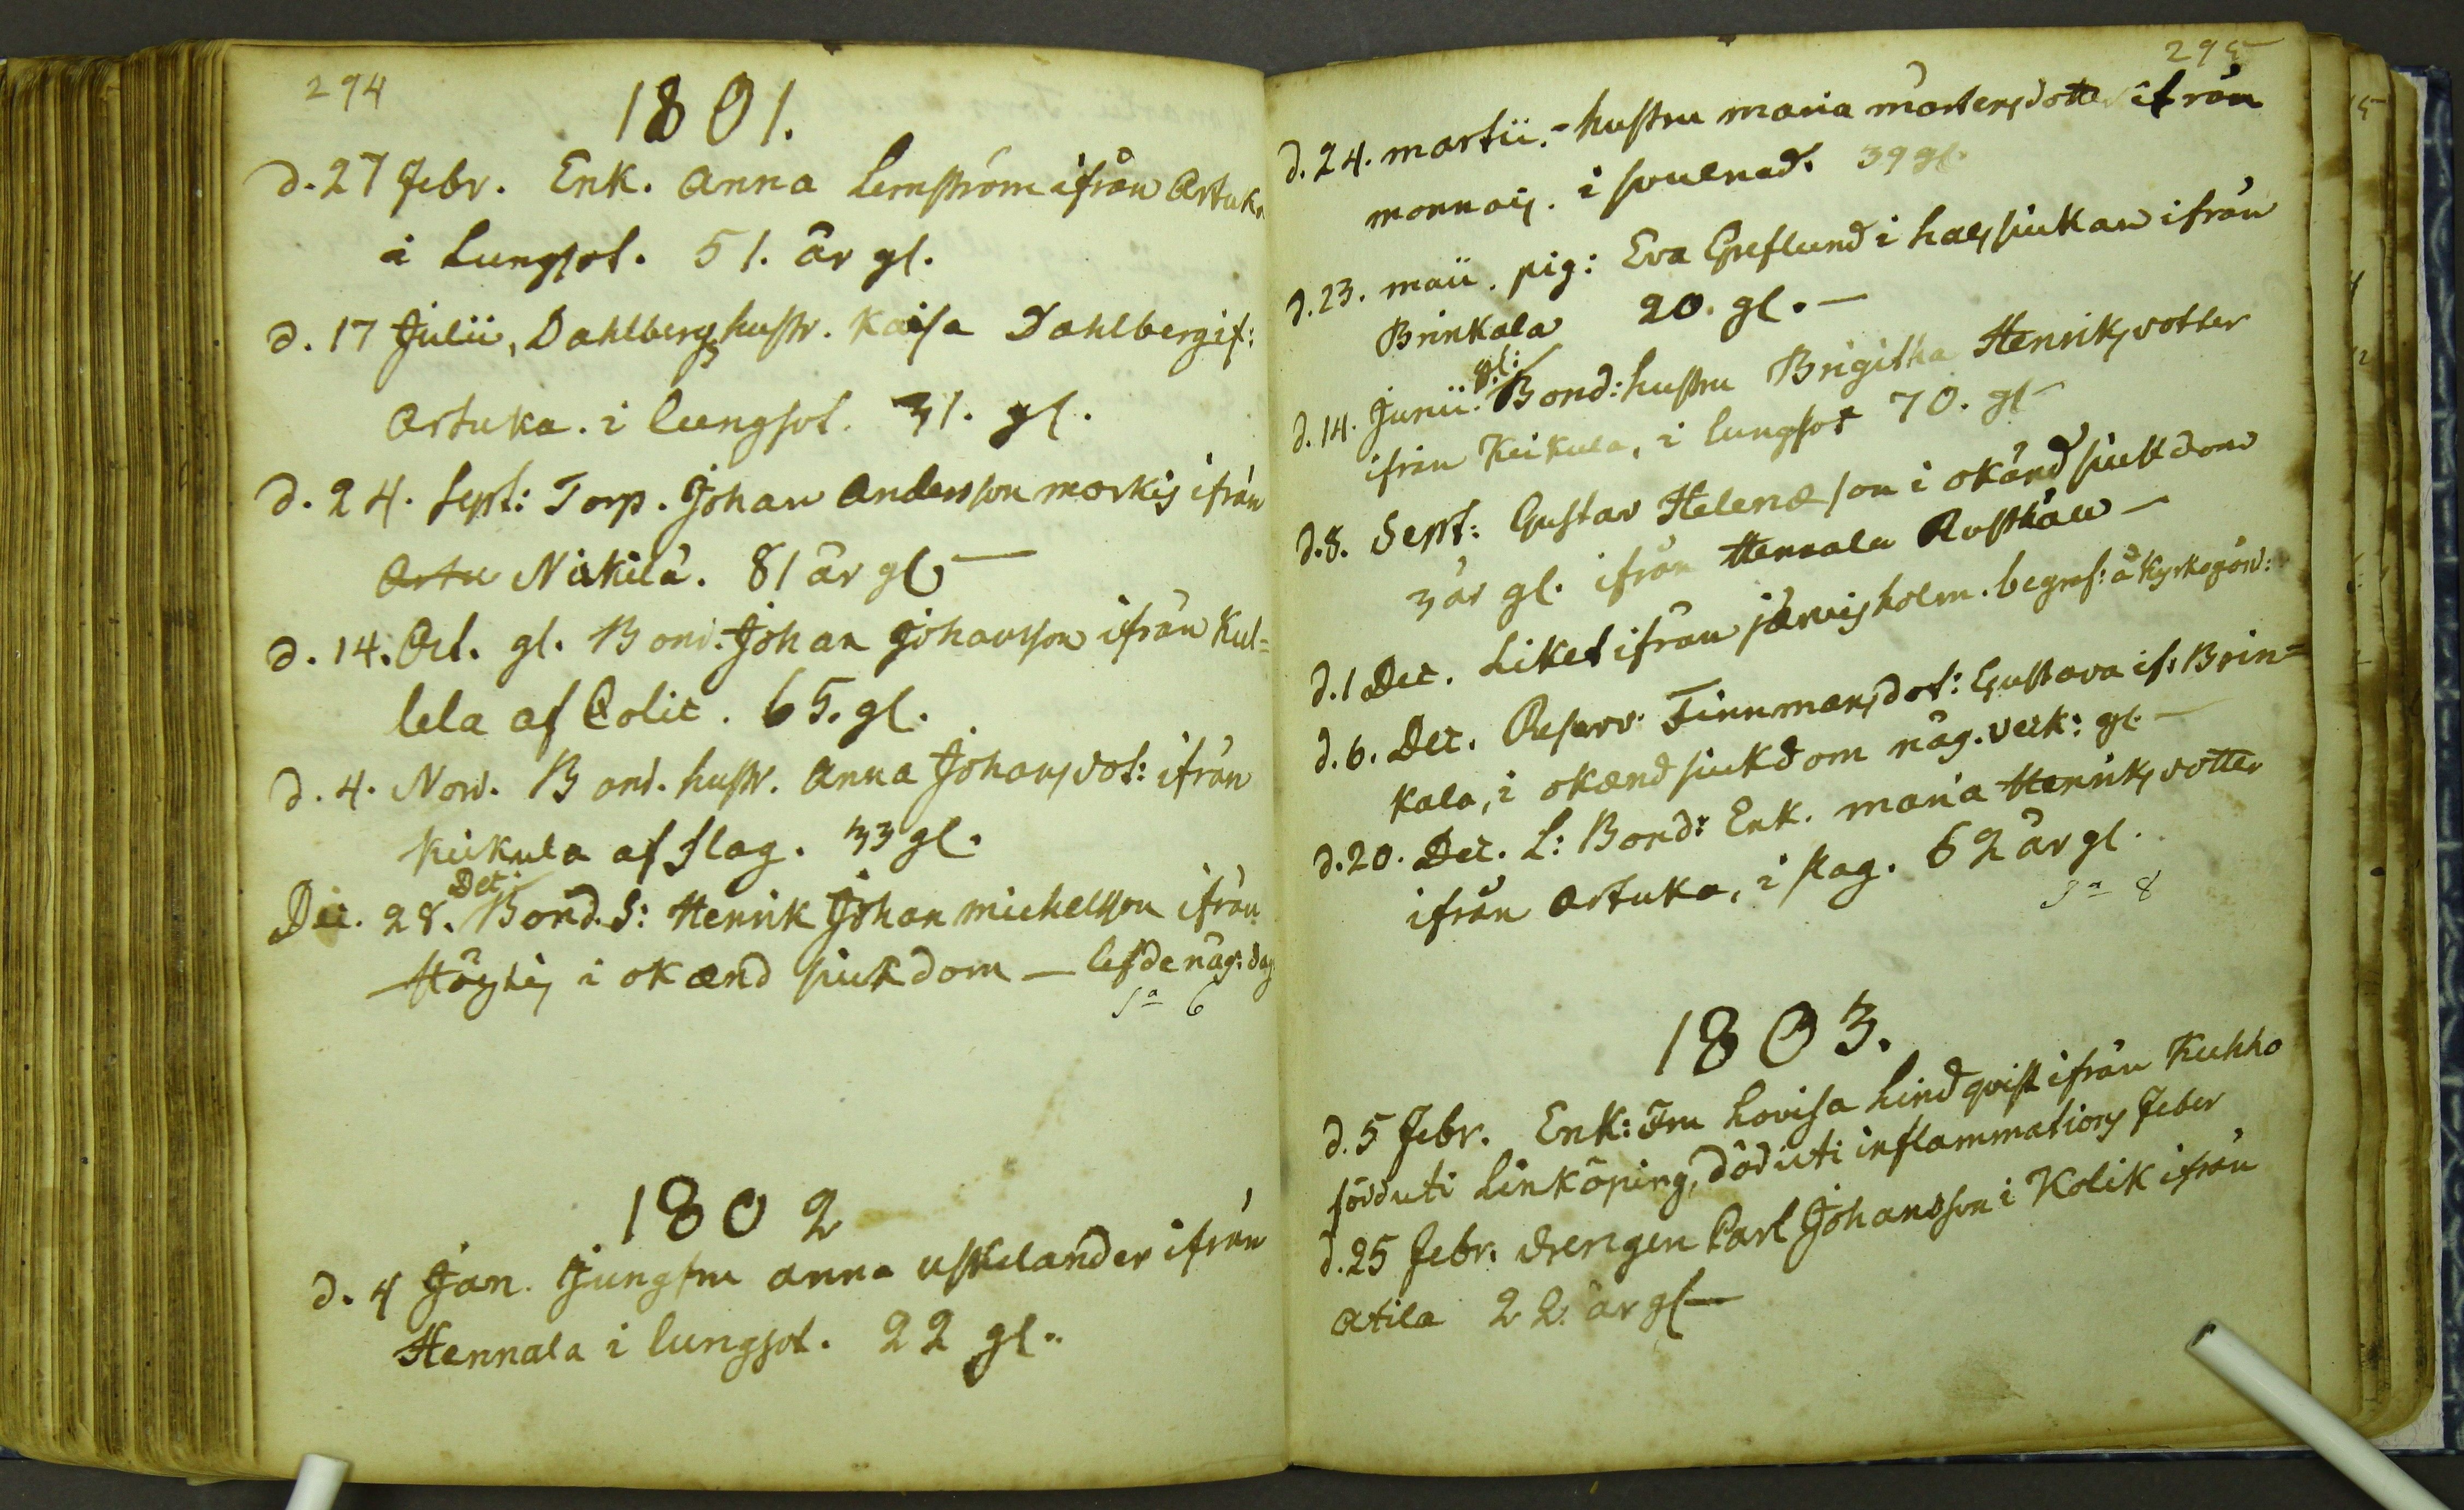 294
1801.
d. 27 Febr. Enk. Anna Lernström ifrån Artuk
i Lungsot. 51. år gl.
d. 17 Julii, Dahlbergs hustr. Kaisa Dahlberg if:
Artuka. i lungsot. 31. gl.
d. 24. Sept: Torp. Johan Andersson morkis ifrån
Artu Niskilä. 81 år gl
d. 14. Oct. gl. Bond. Johan Johansson ifrån Kul=
lela af Colic. 65. gl.
d. 4. Nov. Bond. hustr. Anna Johansdot: ifrån
Keikula af slag. 33 gl.
Dec. 28. Dec: Bond. S: Henrik Johan michelsson ifrån
i okænd siukdom — lefde någ: dag
Sa 6
1802
d. 4 Jan. Jungfru anna uskelander ifrån
Hennala i lungsot. 22 gl.
295
d. 24. martii. - hustru maria mårtensdotter ifrån
monnois. i svulnad. 39 gl.
d. 23. maii. pig: Eva Greflund i halssiukan ifrån
Brinkala 20. gl. —
d. 14. Junii. gl: Bond: hustru Brigitha Henriksdotter
ifrån Keikula, i lungsot 70. gl
d. 8. Sept: Gustav Helenæ son i okänd siukdom
3 år gl. ifrån Hennala Rusthåll —
d. 1 Dec. Liket ifrån järvisholm. begraf: å Kyrkogård:
d. 6. Dec. Reserv. Finnmans dot: Gustava if: Brin=
kala, i okænd siukdom någ. veck: gl. —
d. 20. Dec. L: Bond: Enk. maria Henriksdotter
ifrån Artuka, i slag. 62 år gl.
Sa 8
1803.
d. 5 Febr. Enk: Fru Lovisa Lindqvist ifrån Kuhho
född uti Linköping, död uti inflammations Feber
d. 25 Febr. drengen Carl Johansson i Kolik ifrån
Atila 22. år gl —